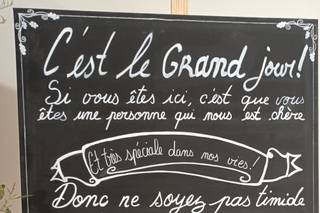 C'est le GRAND jour!
Si vous êtes ici, c'est que vous
êtes une personne qui nous est chère
Et très spéciale dans nos vies!
Donc ne soyez pas timide